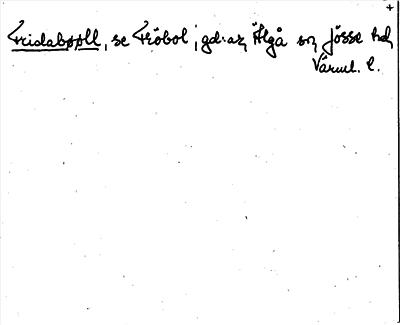 +
Fridaböll, se Fröbol, gd. az Älgå sn, Jösse hd,
Värml. l.